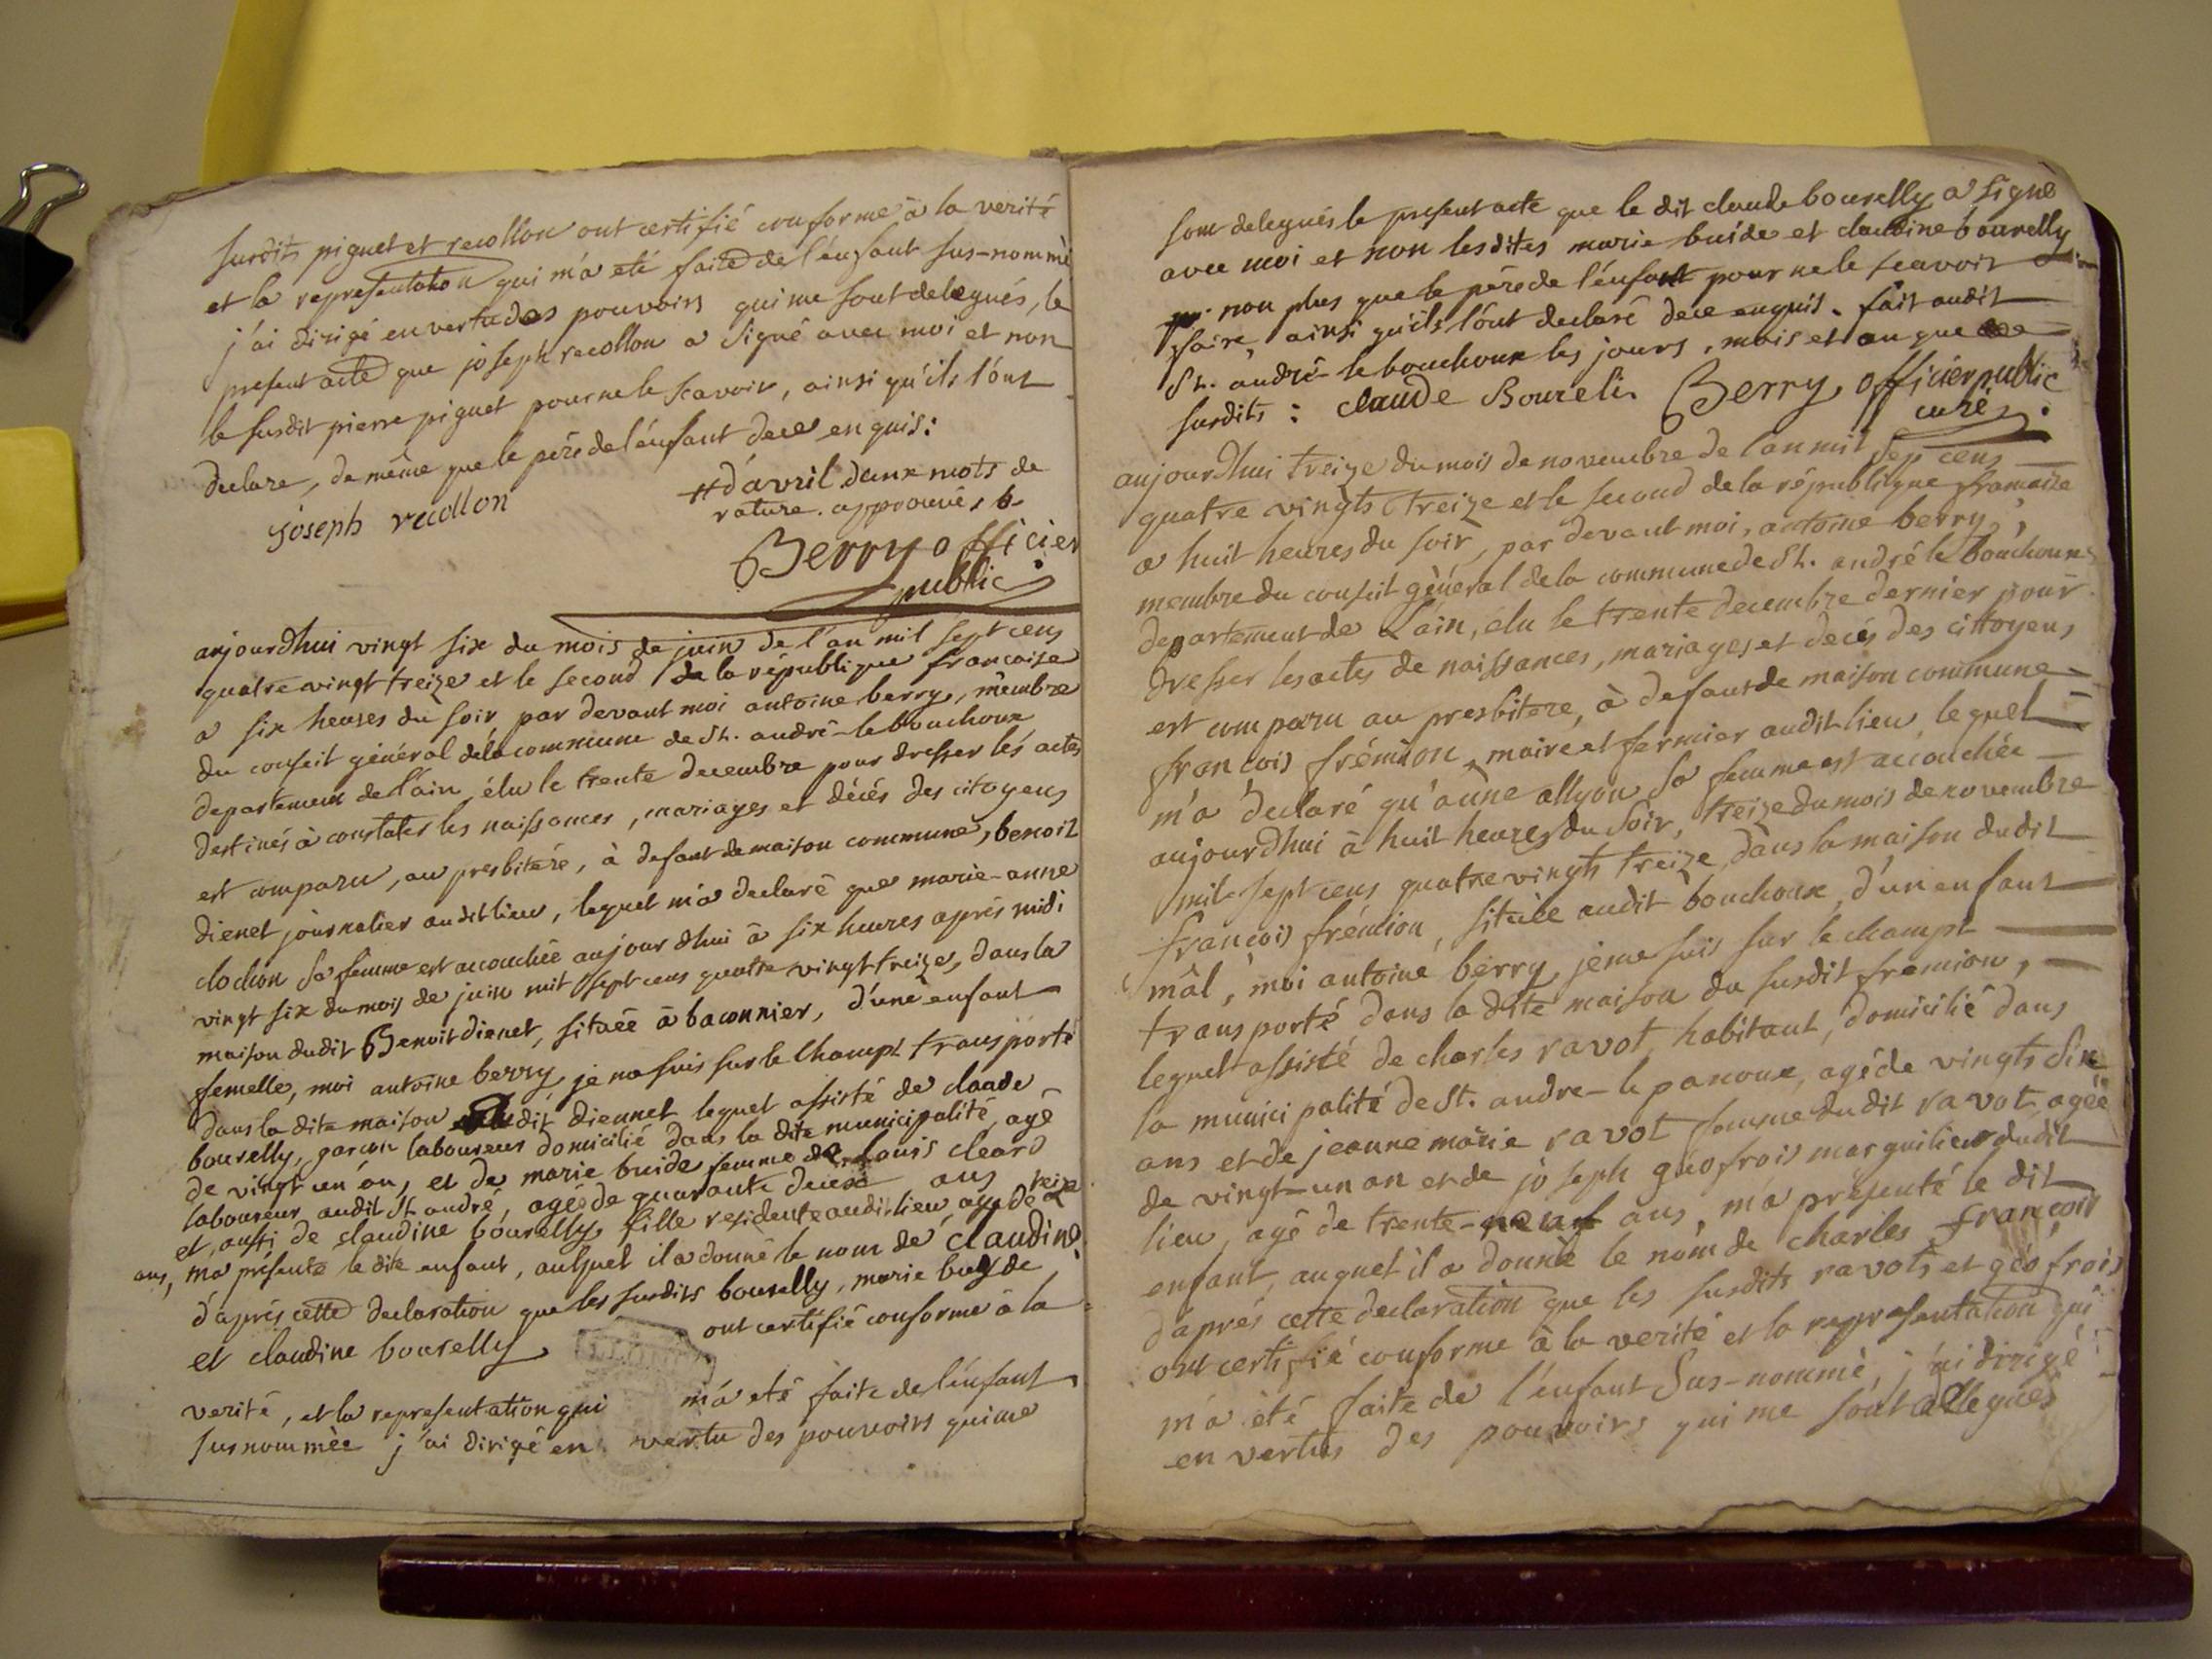 susdits piguet et recollon ont certifié conforme à la verité
et la representation qui m'a eté faite de l'enfant sus-nommé
j'ai dirigé en vertu des pouvoirs qui me sont delegués, le
present acte que joseph recollon a signé avec moi et non
le susdit pierre piguet pour ne le scavoir, ainsi qu'ils l'ont
declare, de même que le père de l'enfant de ce enquis:
joseph recollon
# d'avril deux mots de
rature. approuvés b.
Berry officier
public
aujourdhui vingt six du mois de juin de l'an mil sept cens
quatre vingt treize et le second de la république francaise
a six heures du soir par devant moi antoine berry, membre
du conseil général de la commune de St. andré-le bouchoux
departement de l'ain, élu le trente decembre pour dresser les actes
destinés à constater les naissances, mariages et décés des citoyens
est comparu, au presbitére, à defaut de maison commune, benoit
dienet journalier audit lieu, lequel m'a declaré que marie-anne
clochon sa femme est accouchée aujourdhui à six heures aprés midi
vingt six du mois de juin mil sept cens quatre vingt treize, dans la
maison dudit Benoit dienet, située à baconnier, d'une enfant
femelle, moi antoine berry je me suis sur le champt transporté
dans la dite maison dudit diennet lequel assisté de claude
bourelly, garcon laboureur domicilié dans la dite municipalité, agé
de vingt un an, et de marie buide femme de Louis cleard
laboureur audit St andré, agée de quarante deux ans
et aussi de claudine bourelly fille residente audit lieu agée de treize
ans, m'a présenté le dite enfant, auquel il a donné le nom de claudine
d'aprés cette declaration que les susdits bourelly, marie buyde
et claudine bourelly ont certifié conforme à la
verité, et la representation qui m'a eté faite de l'enfant
susnommée j'ai dirigé en vertu des pouvoirs qui me
sont delegués le present acte que le dit claude bourelly a signé
avec moi et non les dites marie buide et claudine bourelly
non plus que le père de l'enfant pour ne le scavoir
faire, ainsi qu'ils l'ont declaré de ce enquis. fait audit
St. andré-le bouchoux les jours, mois et an que
susdits: claude Boureli. Berry officier public
curé.
aujourdhui treize du mois de novembre de l'an mil sept cens
quatre vingts treize et le second de la république francaise
a huit heures du soir, par devant moi, antoine berry,
membre du conseil général de la commune de St. andré le bouchoux
departement de L'ain, élu le trente decembre dernier pour
dresser les actes de naissances, mariages et decés des cittoyens
est comparu au presbitere, à defaut de maison commune
francois frémion, maire et fermier audit lieu, lequel
m'a declaré qu'anne allyon sa femme est accouchée
aujourdhui à huit heures du soir, treize du mois de novembre
mil sept cens quatre vingts treize, dans la maison dudit
francois frémion, située audit bouchoux, d'un enfant
mâl, moi antoine berry je me suis sur le champt
transporté dans la dite maison du susdit fremion,
lequel assisté de charles ravot, habitant, domicilié dans
la municipalité de St. andre-le panoux, agé de vingts six
ans et de jeanne marie ravot femme du dit ravot, agée
de vingt-un an et de joseph géofrois marguilier dudit
lieu, agé de trente-neuf ans, m'a présenté le dit
enfant, auquel il a donné le nom de charles francois
d'aprés cette declaration que les susdits ravots et géofrois
ont certifié conforme à la verité et la representation qui
m'a été faite de l'enfant sus-nommé, j'ai dirigé
en vertus des pouvoirs qui me sont delegués